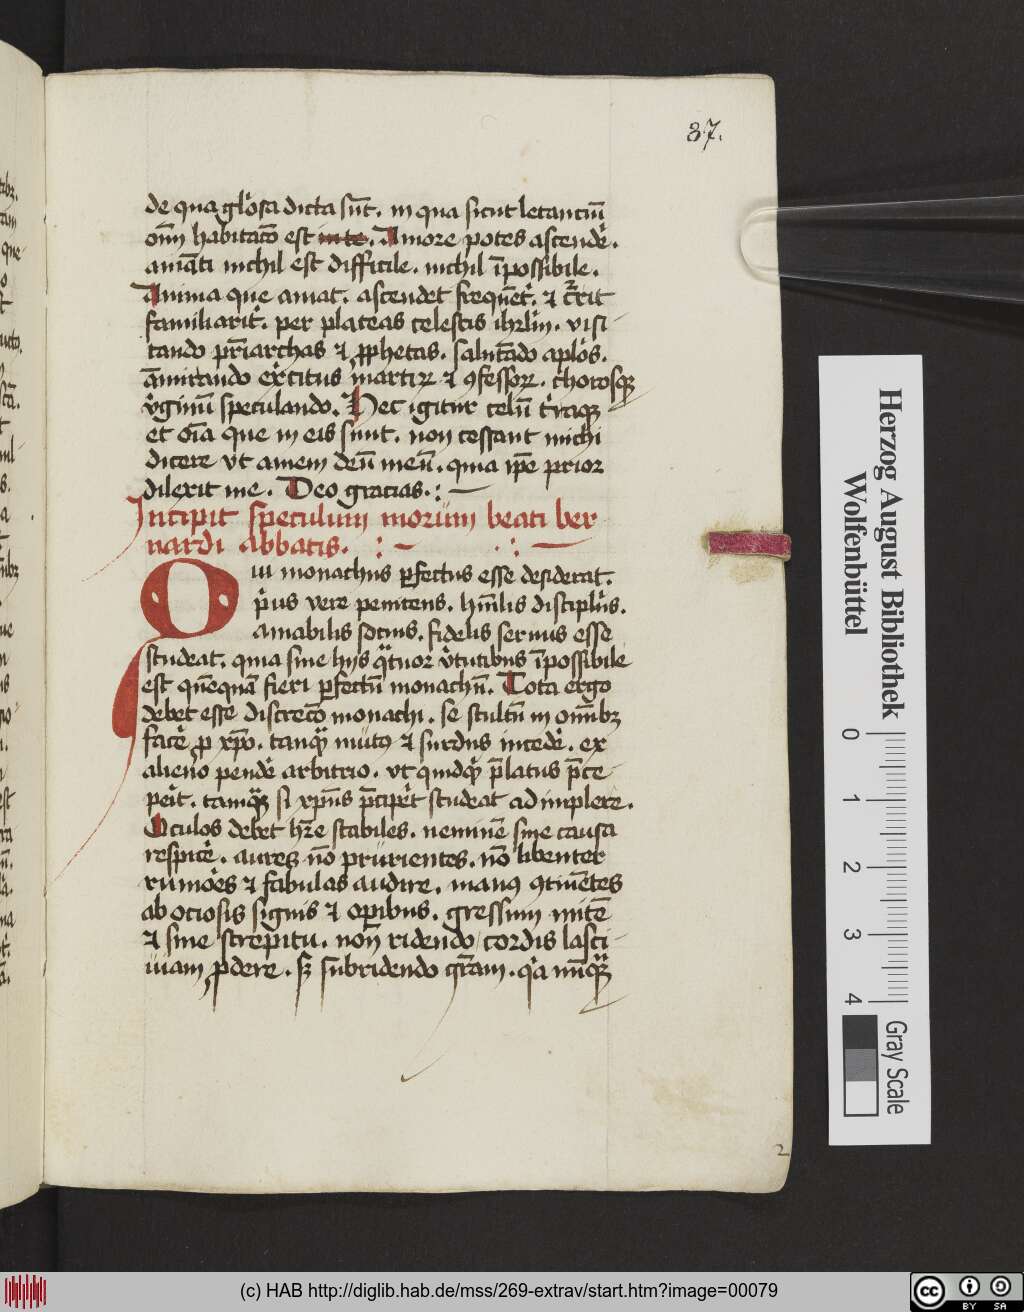 37.
de qua gl'osa dicta sūt. in qua sicut letanciū
om̄ habitaco est in te. Amore potes ascende'.
amāti nichil est difficile. nichil īpossibile.
Anima que amat. ascendet frequēt'. et c'rit
familiarit'. per plateas celestis ihrl'm. visi
tando pr̄iarchas et ꝓphetas. salutādo aplos.
āmirando ex'citus martirꝝ et ꝯfessorꝝ. chorosqꝫ
v'ginū speculando. Hec igitur celū t'raqꝫ
et oīa que in eis sunt. non cessant michi
dicere vt amem deū meū. quia ip̄e prior
dilexit me. Deo gracias.
Incipit speculum morum beati ber
nardi abbatis.
Qui monachus ꝑfectus esse desiderat.
p'us vere penitens. hūilis discipl'us.
amabilis socius. fidelis seruus esse
studeat. quia sine hijs qͣtuor v'tutibus īpossibile
est quēquā fieri ꝑfectū monachū. Tota ergo
debet esse discreco monachi. se stultū in om̄ibꝫ
face' ꝓ xp̄o. tanqͣꝫ mutꝰ et surdus incede'. ex
alieno pende' arbitrio. vt quidqͥd p̄latus p̄ce
pe'it. tamqͣꝫ si xp̄us p̄cip'et studeat adimplere.
Oculos debet hr̄e stabiles. neminē sine causa
respice'. aures nō prurientes. nō libenter
rumo'es et fabulas audire. manꝰ ꝯtinētes
ab ociosis signis et oꝑibus. gressum mitē
et sine strepitu. non ridendo cordis lasci
uiam ꝓdere. sꝫ subridendo gr̄am. q'a nūqͣꝫ
2
Herzog August Bibliothek
Wolfenbüttel
0 1 2 3 4
Gray Scale
(c) HAB http://diglib.hab.de/mss/269-extrav/start.htm?image=00079
cc BY SA